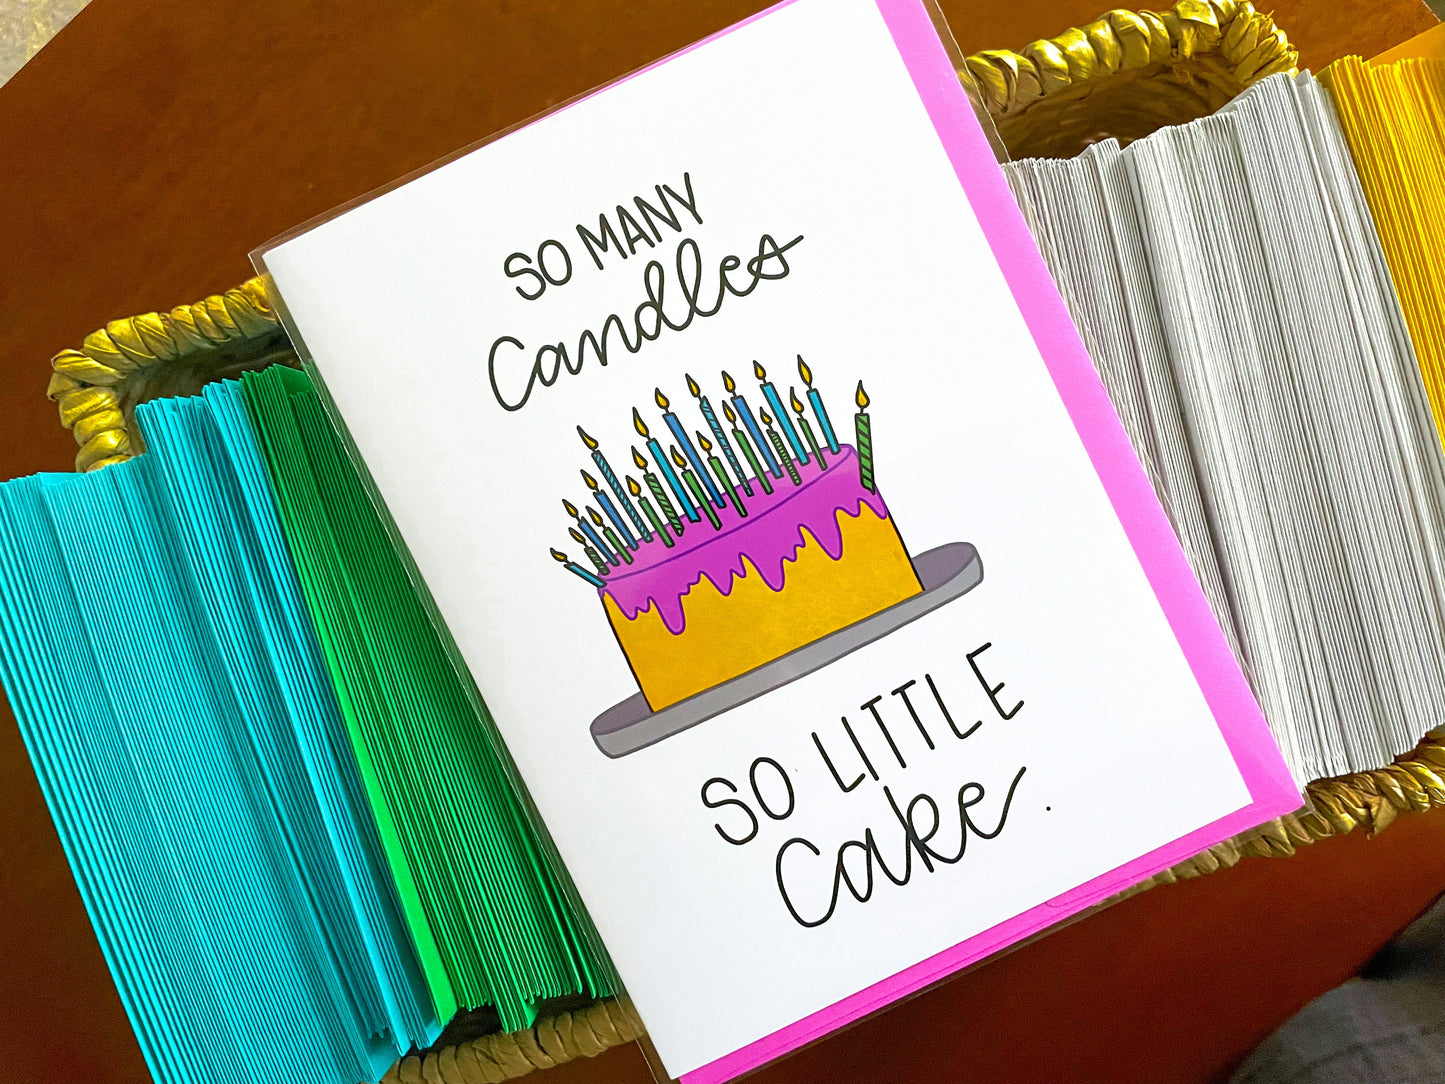 SO MANY
Candles
SO LITTLE
Cake.